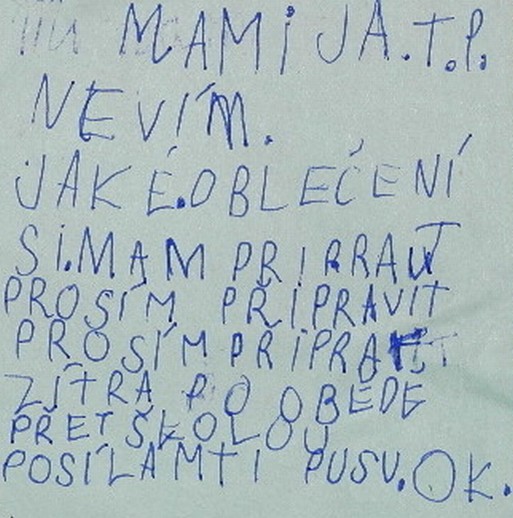 MAMI JÁ.T.P.
NEVÍM.
JAKÉ.OBLEČENÍ
SI.MAM PRIPRAVIT
PROSÍM PŘIPRAVIT
PROSÍM PŘIPRAVIT
ZÍTRA PO OBĚDE
PŘET ŠKOLOU
POSÍLÁM TI PUSU. OK.